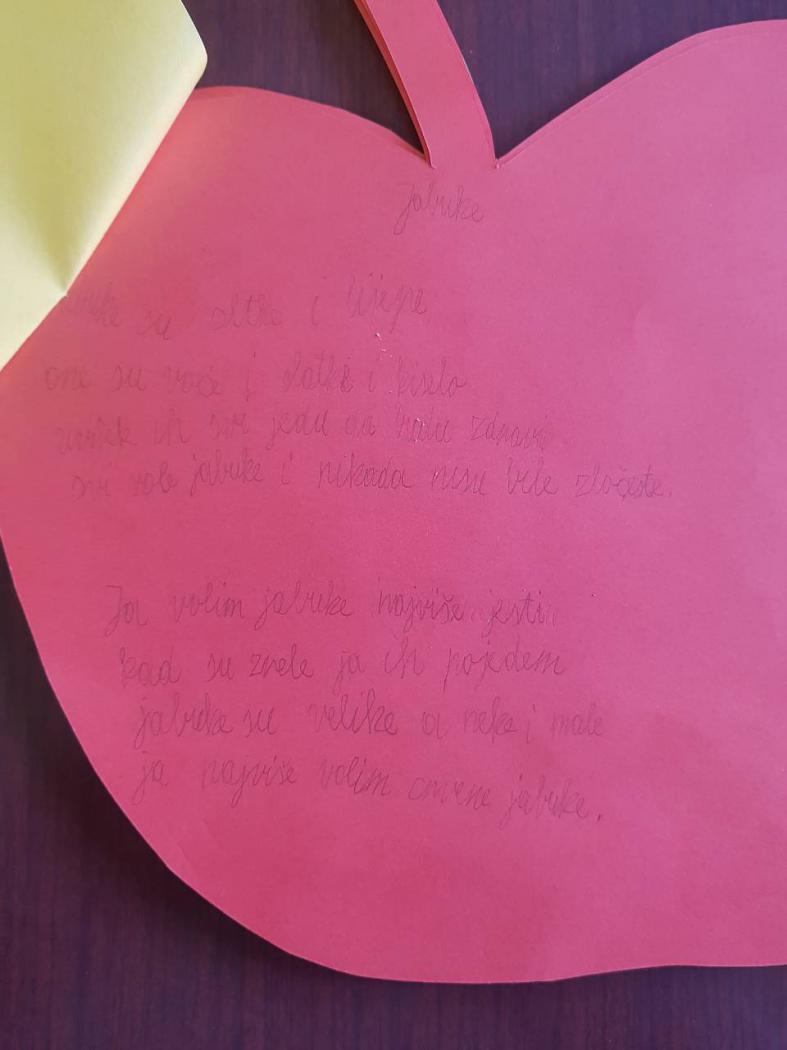 Jabuke
su slatke i lijepe
one su voće i slatko i kiselo
uvijek ih svi jedu da budu zdravi
svi vole jabuke i nikada nisu bile zločeste.
Ja volim jabuke najviše jesti
kad su zrele ja ih pojedem
jabuke su velike a neke i male
ja najviše volim crvene jabuke.